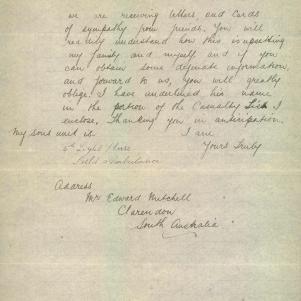 we are receiving letters and Cards
of sympathy from friends. You will
readily understand how this is upsetting
my family and myself and if you
can obtain some definate information
and forward to us, you will greatly
oblige. I have underlined his name
in the portion of the Casualty List I
enclose. Thanking you in anticipation.
My sons unit is I am
5th Light Horse Yours Truly
Field Ambulance
Address
Mr Edward Mitchell
Clarendon
South Australia